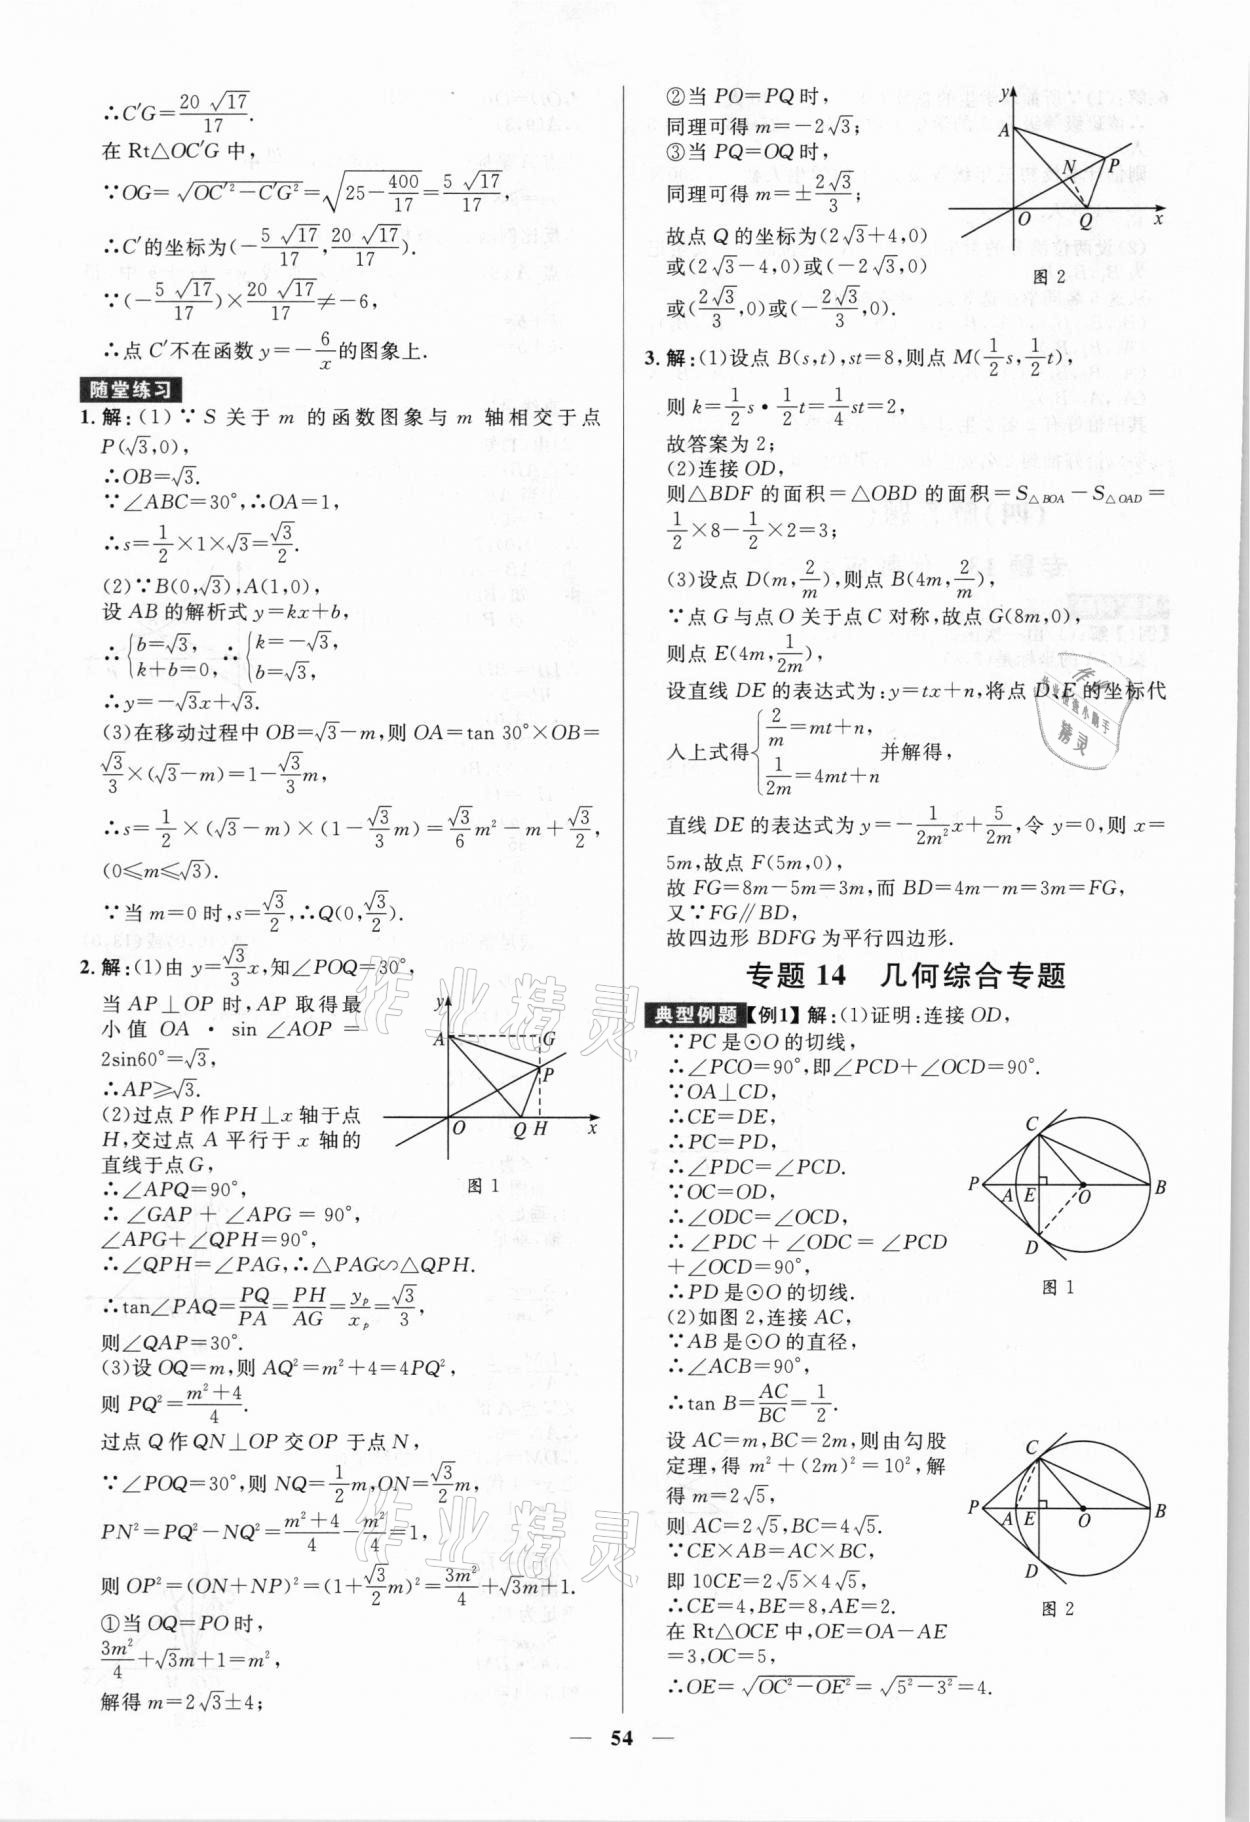 ∴C′G=20√17/17.
在 Rt△OC′G 中，
∵OG=√(OC′²−C′G²)=√(25−400/17)=5√17/17，
∴C′的坐标为(−5√17/17,20√17/17).
∵(−5√17/17)×20√17/17≠−6，
∴点 C′不在函数 y=−6/x的图象上.
随堂练习
1.解:(1)∵S 关于 m 的函数图象与 m 轴相交于点
P(√3,0)，
∴OB=√3.
∵∠ABC=30°,∴OA=1，
∴s=1/2×1×√3=√3/2.
(2)∵B(0,√3),A(1,0)，
设 AB 的解析式 y=kx+b，
∴{b=√3, k+b=0, ∴{k=−√3, b=√3,
∴y=−√3x+√3.
(3)在移动过程中 OB=√3−m,则 OA=tan 30°×OB=
√3/3×(√3−m)=1−√3/3m，
∴s=1/2×(√3−m)×(1−√3/3m)=√3/6m²−m+√3/2，
(0≤m≤√3).
∵当 m=0 时,s=√3/2,∴Q(0,√3/2).
2.解:(1)由 y=√3/3x,知∠POQ=30°，
当 AP⊥OP 时,AP 取得最
小值 OA · sin ∠AOP =
2sin60°=√3，
∴AP≥√3.
(2)过点 P 作 PH⊥x 轴于点
H,交过点 A 平行于 x 轴的
直线于点 G，
∴∠APQ=90°，
∴∠GAP+∠APG=90°，
∠APG+∠QPH=90°，
∴∠QPH=∠PAG,∴△PAG∽△QPH.
∴tan∠PAQ=PQ/PA=PH/AG=y_p/x_p=√3/3，
则∠QAP=30°.
y
A
G
P
O
Q
H
x
图 1
(3)设 OQ=m,则 AQ²=m²+4=4PQ²，
则 PQ²=(m²+4)/4.
过点 Q 作 QN⊥OP 交 OP 于点 N，
∵∠POQ=30°,则 NQ=1/2m,ON=√3/2m，
PN²=PQ²−NQ²=(m²+4)/4−m²/4=1，
则 OP²=(ON+NP)²=(1+√3/2m)²=3m²/4+√3m+1.
①当 OQ=PO 时，
3m²/4+√3m+1=m²，
解得 m=2√3±4；
②当 PO=PQ 时，
同理可得 m=−2√3；
③当 PQ=OQ 时，
同理可得 m=±2√3/3；
故点 Q 的坐标为(2√3+4,0)
或(2√3−4,0)或(−2√3,0)
或(2√3/3,0)或(−2√3/3,0).
y
A
P
N
O
Q
x
图 2
3.解:(1)设点 B(s,t),st=8,则点 M(1/2s,1/2t)，
则 k=1/2s·1/2t=1/4st=2，
故答案为 2；
(2)连接 OD，
则△BDF 的面积=△OBD 的面积=S△BOA−S△OAD=
1/2×8−1/2×2=3；
(3)设点 D(m,2/m),则点 B(4m,2/m)，
∵点 G 与点 O 关于点 C 对称,故点 G(8m,0)，
则点 E(4m,1/2m)，
设直线 DE 的表达式为:y=tx+n,将点 D、E 的坐标代
入上式得{2/m=mt+n, 1/2m=4mt+n 并解得，
直线 DE 的表达式为 y=−1/2m²x+5/2m,令 y=0,则 x=
5m,故点 F(5m,0)，
故 FG=8m−5m=3m,而 BD=4m−m=3m=FG，
又∵FG∥BD，
故四边形 BDFG 为平行四边形.
专题 14 几何综合专题
典型例题【例1】解:(1)证明:连接 OD，
∵PC 是⊙O 的切线，
∴∠PCO=90°,即∠PCD+∠OCD=90°.
∵OA⊥CD，
∴CE=DE，
∴PC=PD，
∴∠PDC=∠PCD.
∵OC=OD，
∴∠ODC=∠OCD，
∴∠PDC+∠ODC=∠PCD
+∠OCD=90°，
∴PD 是⊙O 的切线.
C
P
A
E
O
B
D
图 1
(2)如图 2,连接 AC，
∵AB 是⊙O 的直径，
∴∠ACB=90°，
∴tan B=AC/BC=1/2.
设 AC=m,BC=2m,则由勾股
定理,得 m²+(2m)²=10²,解
得 m=2√5，
则 AC=2√5,BC=4√5.
∵CE×AB=AC×BC，
即 10CE=2√5×4√5，
∴CE=4,BE=8,AE=2.
在 Rt△OCE 中,OE=OA−AE
=3,OC=5，
∴OE=√(OC²−OE²)=√(5²−3²)=4.
C
P
A
E
O
B
D
图 2
— 54 —
作业精灵
作业精灵